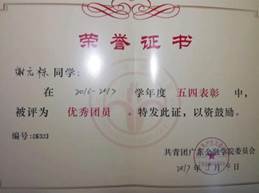 荣誉证书
谢云栎同学：
在 2016-2017 学年度 五四表彰 中，
被评为 优秀团员 。特发此证，以资鼓励。
编号：
共青团广东金融学院委员会
2017年5月